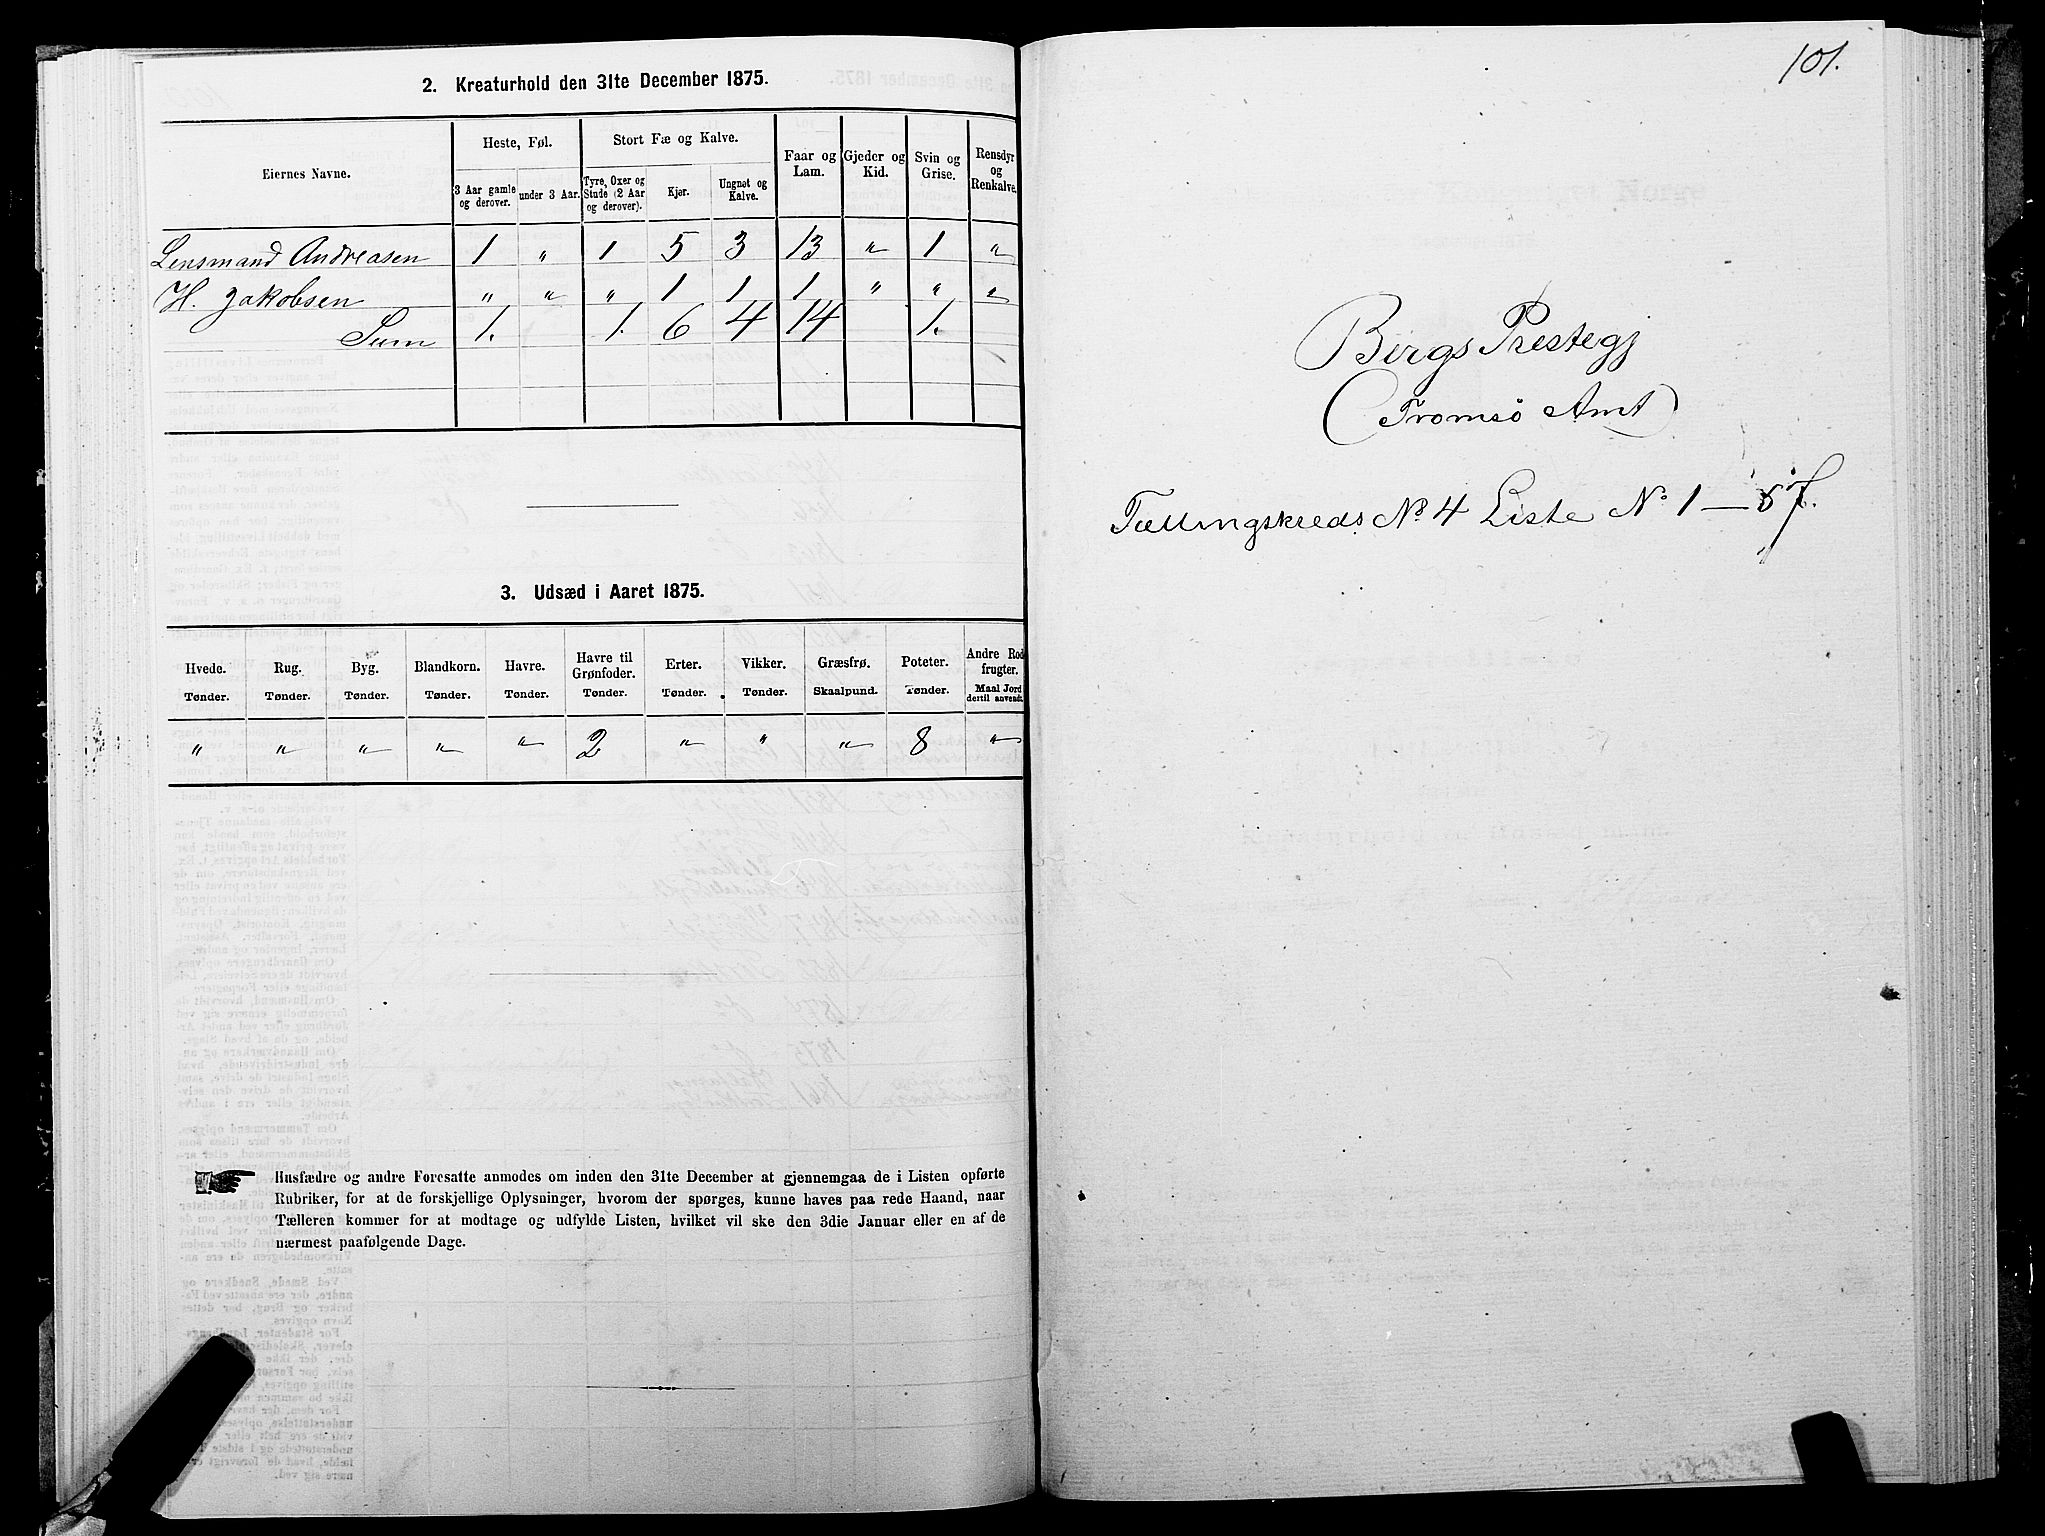 2. Kreaturhold den 31te December 1875.
Eiernes Navne.
Heste, Føl.
3 Aar gamle og derover.
under 3 Aar.
Stort Fæ og Kalve.
Tyre, Oxer og Stude (2 Aar og derover).
Kjør.
Ungnøt og Kalve.
Faar og Lam.
Gjeder og Kid.
Svin og Grise.
Rensdyr og Renkalve.
Lensmand Andreasen 1 " 1 5 3 13 " 1 "
H. Jakobsen " " " 1 1 1 " " "
Sum 1. 1. 6 4 14 1.
3. Udsæd i Aaret 1875.
Hvede. Tønder.
Rug. Tønder.
Byg. Tønder.
Blandkorn. Tønder.
Havre. Tønder.
Havre til Grønfoder. Tønder.
Erter. Tønder.
Vikker. Tønder.
Græsfrø. Skaalpund.
Poteter. Tønder.
Andre Rodfrugter. Maal Jord dertil anvendt.
" " " " " 2 " " " 8 "
Husfædre og andre Foresatte anmodes om inden den 31te December at gjennemgaa de i Listen opførte
Rubriker, for at de forskjellige Oplysninger, hvorom der spørges, kunne haves paa rede Haand, naar
Tælleren kommer for at modtage og udfylde Listen, hvilket vil ske den 3die Januar eller en af de
nærmest paafølgende Dage.
101.
Bergs Prestegj
(Tromsö Amt)
Tællingskreds No. 4 Liste No 1 — 57.